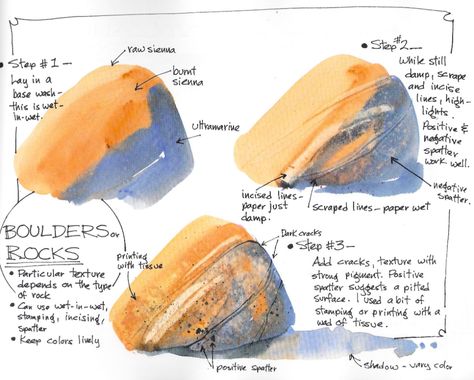 • Step #1 —
Lay in a
base wash —
this is wet-
in-wet.
raw sienna
burnt
sienna
ultramarine
• Step #2 —
While still
damp, scrape
and incise
lines, high-
lights.
Positive &
negative
spatter
work well.
negative
spatter.
incised lines –
paper just
damp.
scraped lines – paper wet
BOULDERS or
ROCKS
• Particular texture
depends on the type
of rock
• Can use wet-in-wet,
stamping, incising,
spatter
• Keep colors lively
printing
with tissue
Dark cracks
• Step #3 —
Add cracks, texture with
strong pigment. Positive
spatter suggests a pitted
surface. I used a bit of
stamping or printing with a
wad of tissue.
positive spatter
shadow – vary color